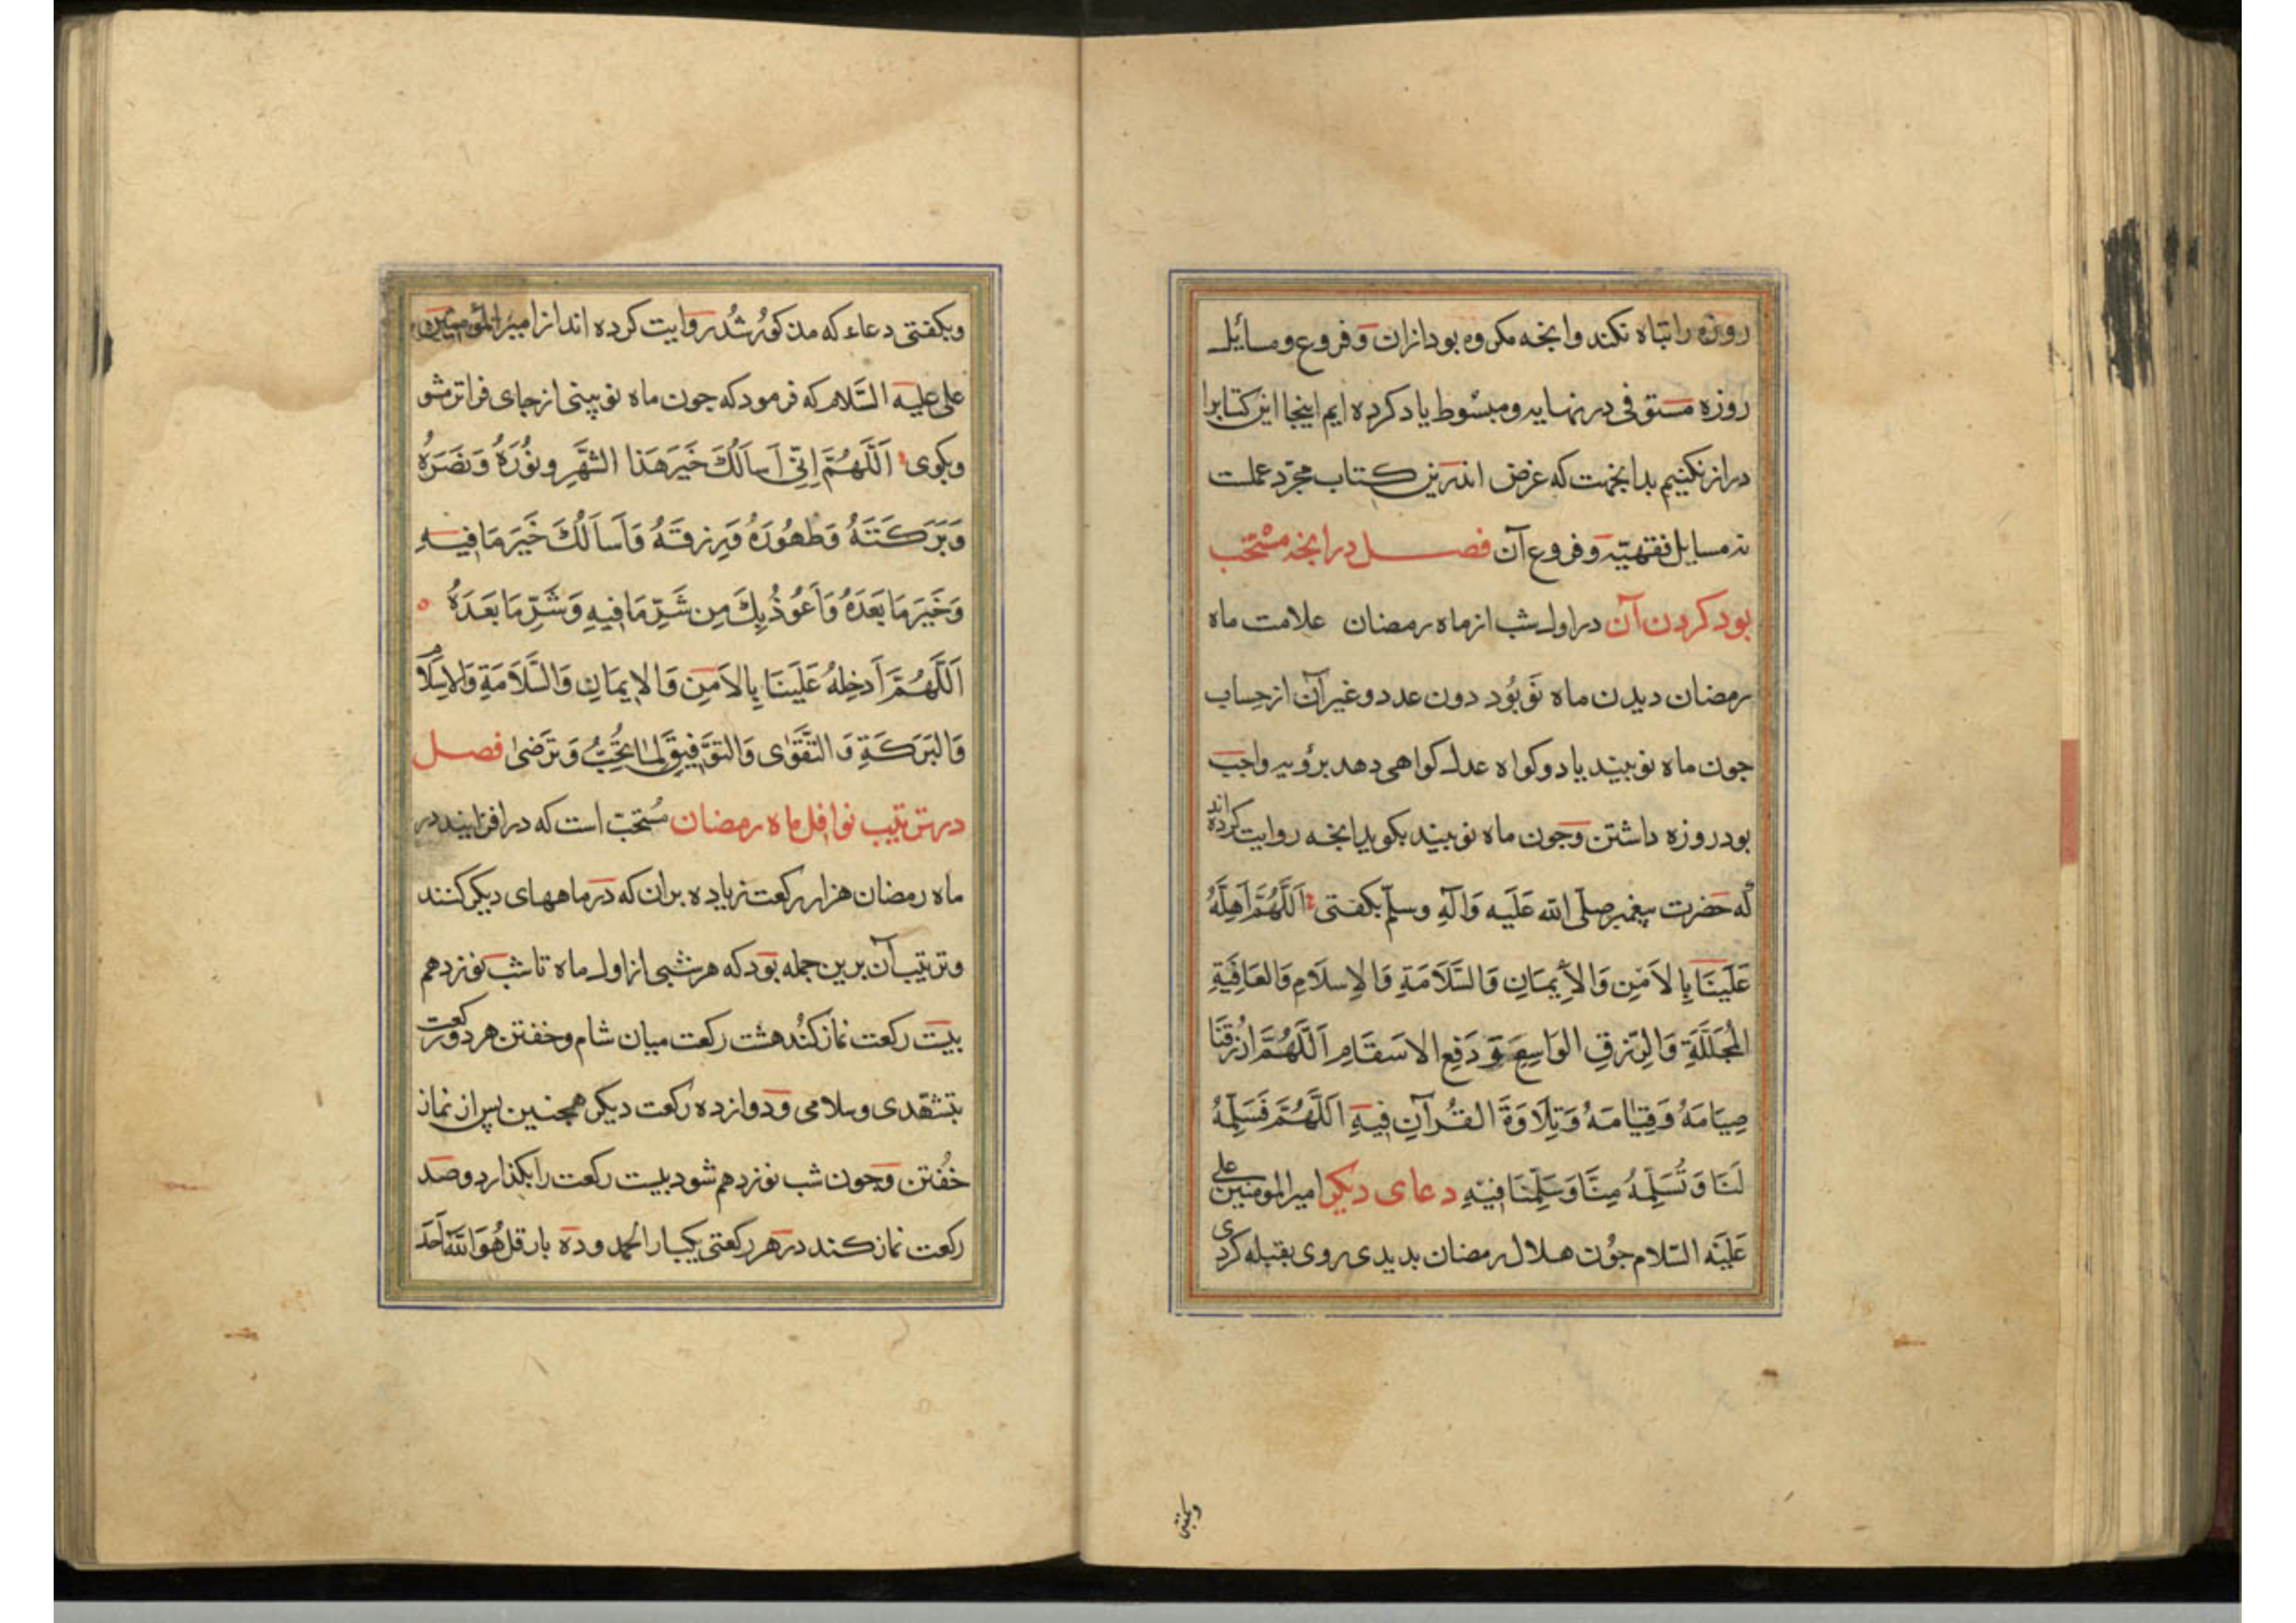 روزه را تباه نکند وانجه مکروه بود ازان وفروع ومسایل
روزه مستوفی در نهایه ومبسوط یاد کرده ایم اینجا این کتابرا
دراز نکنیم بدانجهت که غرض اندرین کتاب مجرّد عملست
نه مسایل فقهیّه وفروع آن فصل در انجه مستحب
بود کردن آن در اول شب از ماه رمضان علامت ماه
رمضان دیدن ماه نَو بُود دون عدد وغیر آن از حساب
جون ماه نو ببیند یا دو کواه عدل کواهی دهد برؤیه واجب
بود روزه داشتن وجون ماه نو ببیند بکوید انجه روایت کرده اند
که حضرت پیغمبر صلّی الله عَلَیه وَآلِهِ وسلّم بکفتی اَللَّهُمَّ اَهِلَّهُ
عَلَینَا بِالاَمنِ وَالاِیمَانِ وَالسَّلَامَةِ وَالاِسلَامِ وَالعَافِیَةِ
المُجَلَّلَةِ وَالرِّزقِ الوَاسِعِ وَدَفعِ الاسقَامِ اَللَّهُمَّ ارزُقنَا
صِیَامَهُ وَقِیَامَهُ وَتِلَاوَةَ القُرآنِ فِیهِ اَللَّهُمَّ فَسَلِّمهُ
لَنَا وَتَسَلَّمهُ مِنَّا وَسَلِّمنَا فِیهِ دعای دیکر امیرالمومنین علی
عَلَیهِ السَّلام جون هلال رمضان بدیدی روی بقبله کردی
وبکفتی
وبکفتی دعاء که مذکور شُد روایت کرده اند از امیرالمؤمنین
علی علیه السَّلام که فرمود که جون ماه نو ببینی از جای فراتر مشو
وبکوی اَللَّهُمَّ اِنّی اَسألُكَ خَیرَ هَذا الشَّهرِ ونُورَهُ وَنَصرَهُ
وَبَرَكَتَهُ وَطَهُورَهُ وَرِزقَهُ وَاَسأَلُكَ خَیرَ مَا فِیهِ
وَخَیرَ مَا بَعدَهُ وَاَعُوذُ بِكَ مِن شَرِّ مَا فِیهِ وَشَرِّ مَا بَعدَهُ
اَللَّهُمَّ اَدخِلهُ عَلَینَا بِالاَمنِ وَالاِیمَانِ وَالسَّلَامَةِ وَالاِسلَام
وَالبَرَكَةِ وَالتَّقوَی وَالتَّوفِیقِ لِمَا تُحِبُّ وَتَرضَی فصل
در ترتیب نوافل ماه رمضان مُستحبّ است که در افزایند در
ماه رمضان هزار رکعت زیاده بران که در ماههای دیکر کنند
وترتیب آن برین جمله بود که هر شبی از اول ماه تا شب نوزدهم
بیست رکعت نماز کند هشت رکعت میان شام وخفتن هر دو رکعت
بتشهّدی وسلامی ودوازده رکعت دیکر همجنین پس از نماز
خُفتن وجون شب نوزدهم شود بیست رکعت را بکذارد وصد
رکعت نماز کند در هر رکعتی یکبار الحمد وده بار قل هُوَ اللهُ اَحَد